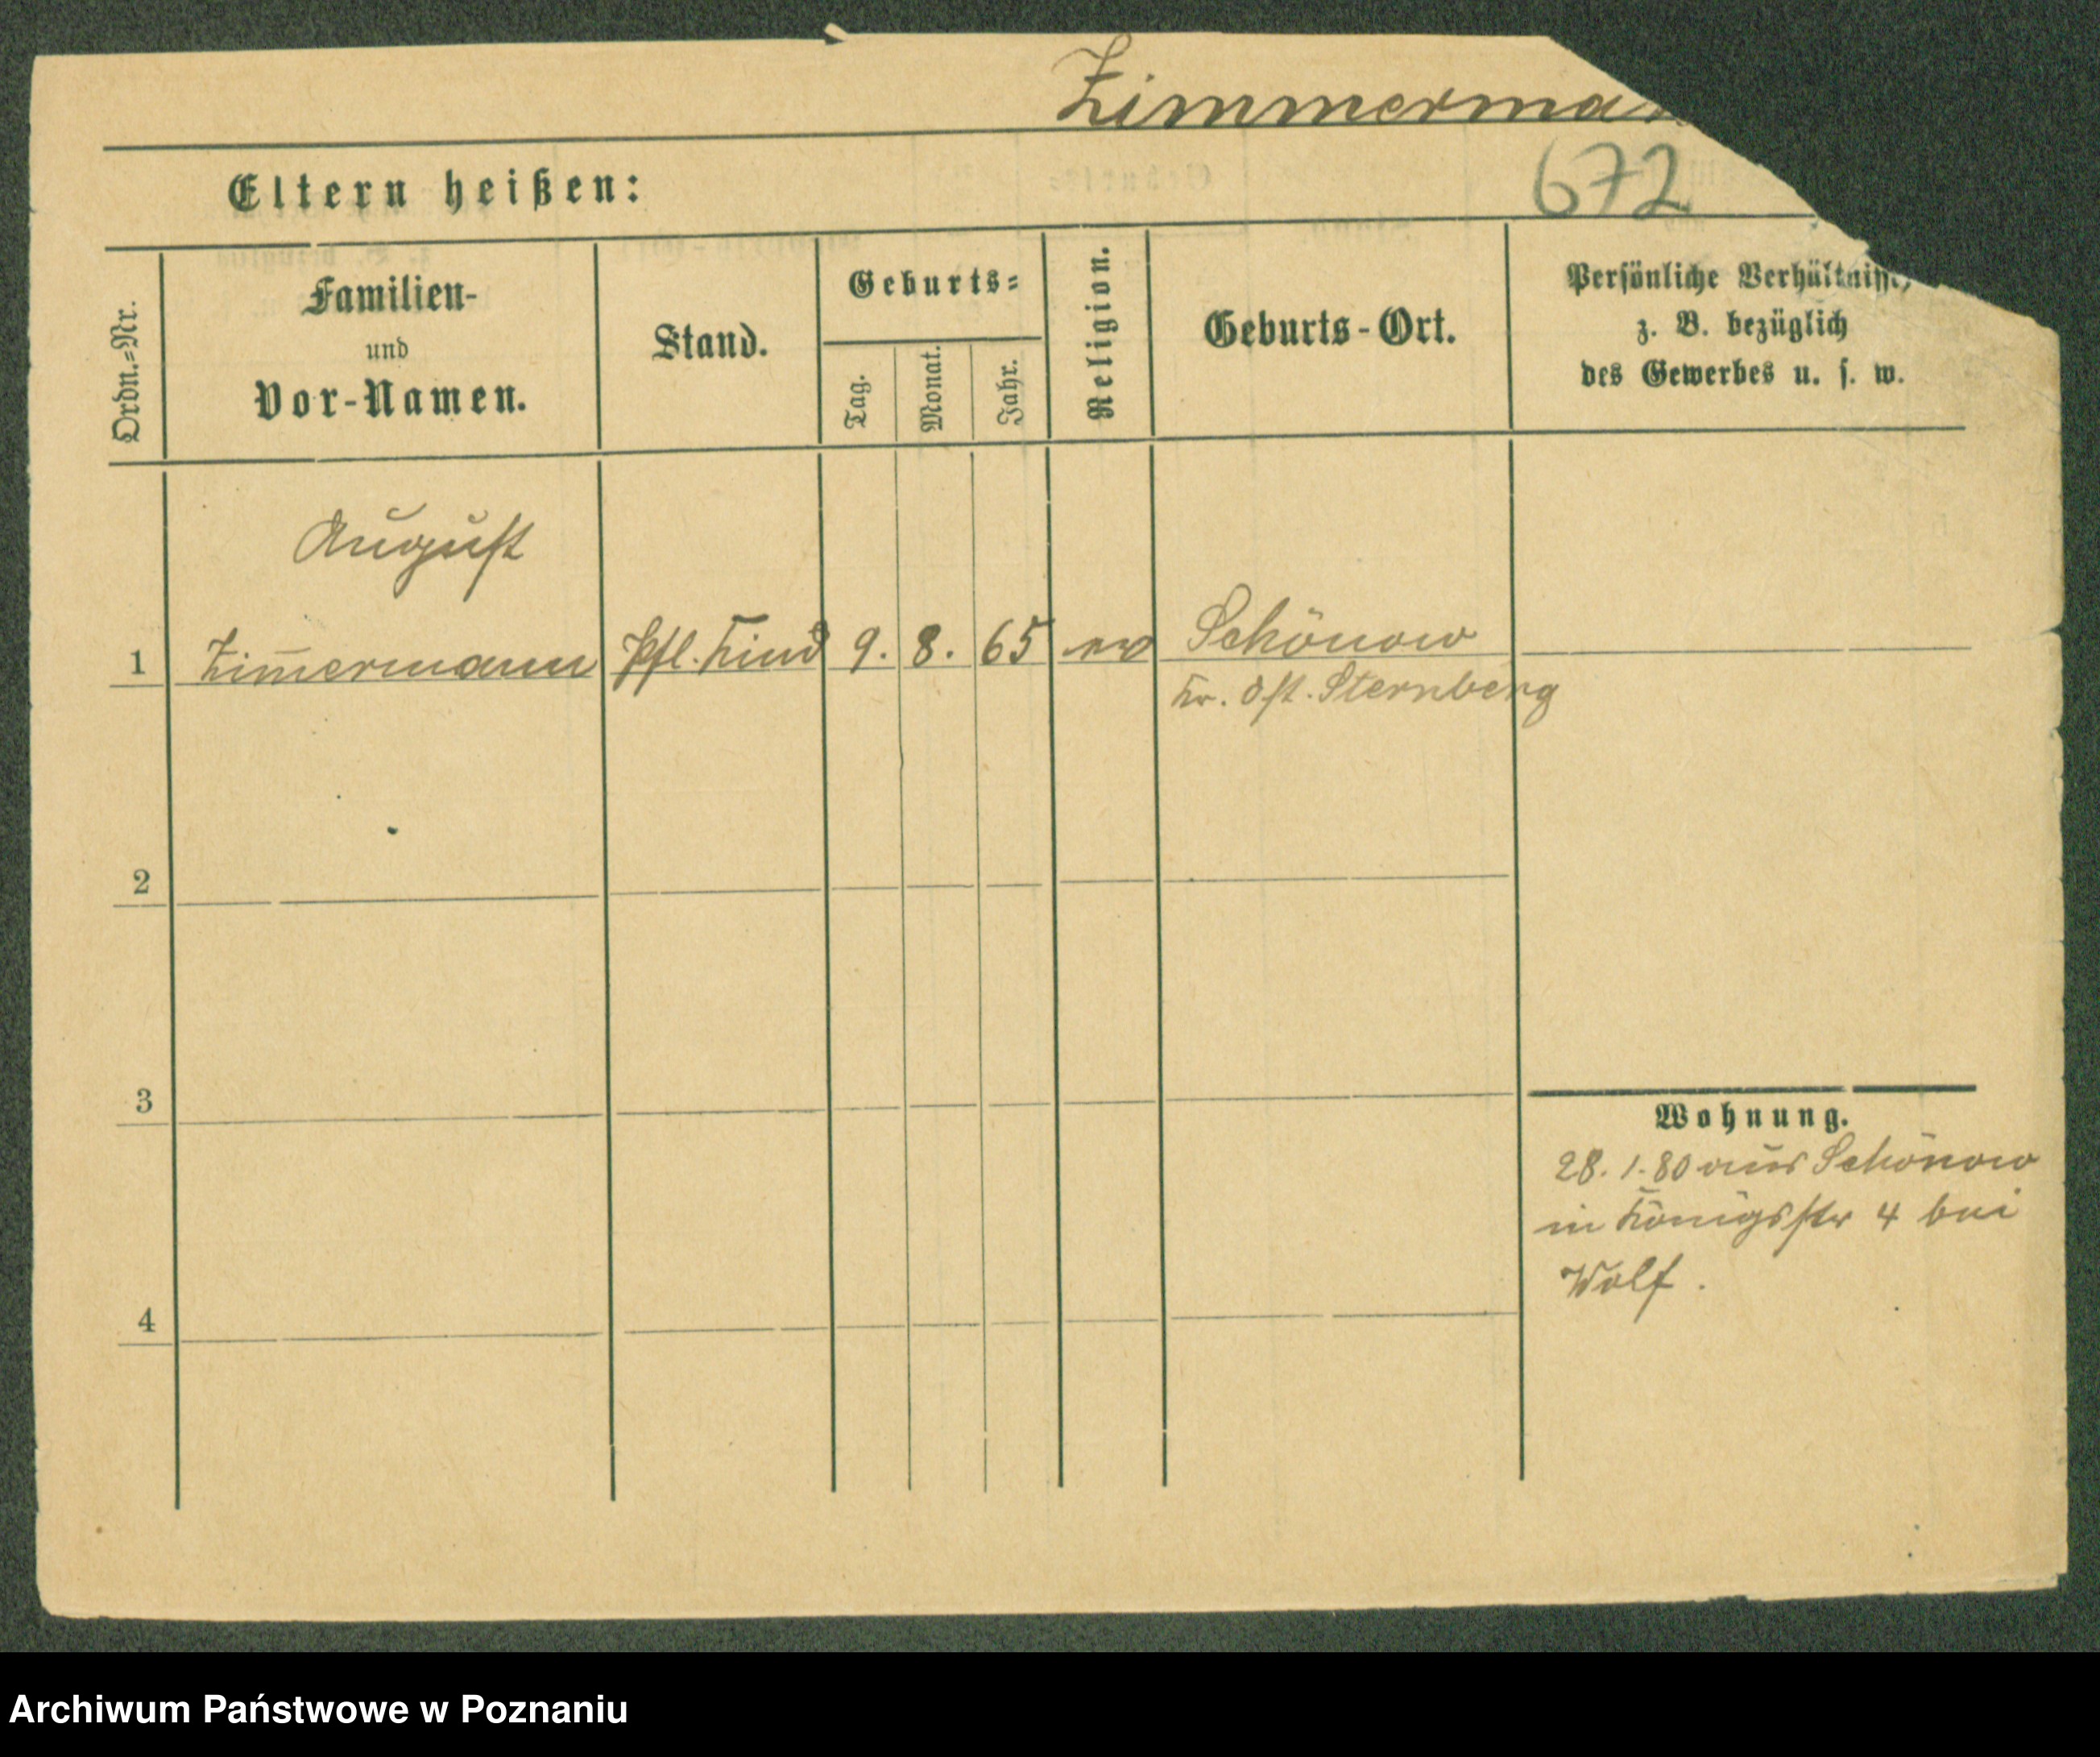 Zimmerma
672
Eltern heißen:
Ordn.=Nr.
Familien-
und
Vor-Namen.
Stand.
Geburts=
Tag.
Monat.
Jahr.
Religion.
Geburts-Ort.
Persönliche Verhältnisse,
z. B. bezüglich
des Gewerbes u. s. w.
August
1 Zim̄ermann Pfl. Kind 9. 8. 65 ev Schönow
Kr. Ost. Sternberg
2
3
Wohnung.
28. 1. 80 aus Schönow
in Königsstr 4 bei
Wolf.
4
Archiwum Państwowe w Poznaniu